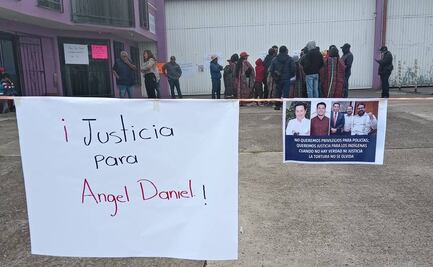 ¡ Justicia
para
Angel Daniel !
NO QUEREMOS PRIVILEGIOS PARA POLICÍAS;
QUEREMOS JUSTICIA PARA LOS INDÍGENAS
CUANDO NO HAY VERDAD NI JUSTICIA
LA TORTURA NO SE OLVIDA